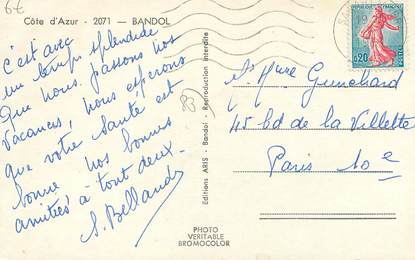 6€
Côte d'Azur - 2071 — BANDOL
c'est avec
un temps splendide
Que nous passons nos
Vacances, nous espérons
que votre santé est
bonne nos bonnes
amitiés à tout deux.
S. Bellando
83
Editions ARIS - Bandol - Reproduction interdite
PHOTO
VERITABLE
BROMOCOLOR
0,20
Guinchard
45 bd de la Villette
Paris 10e